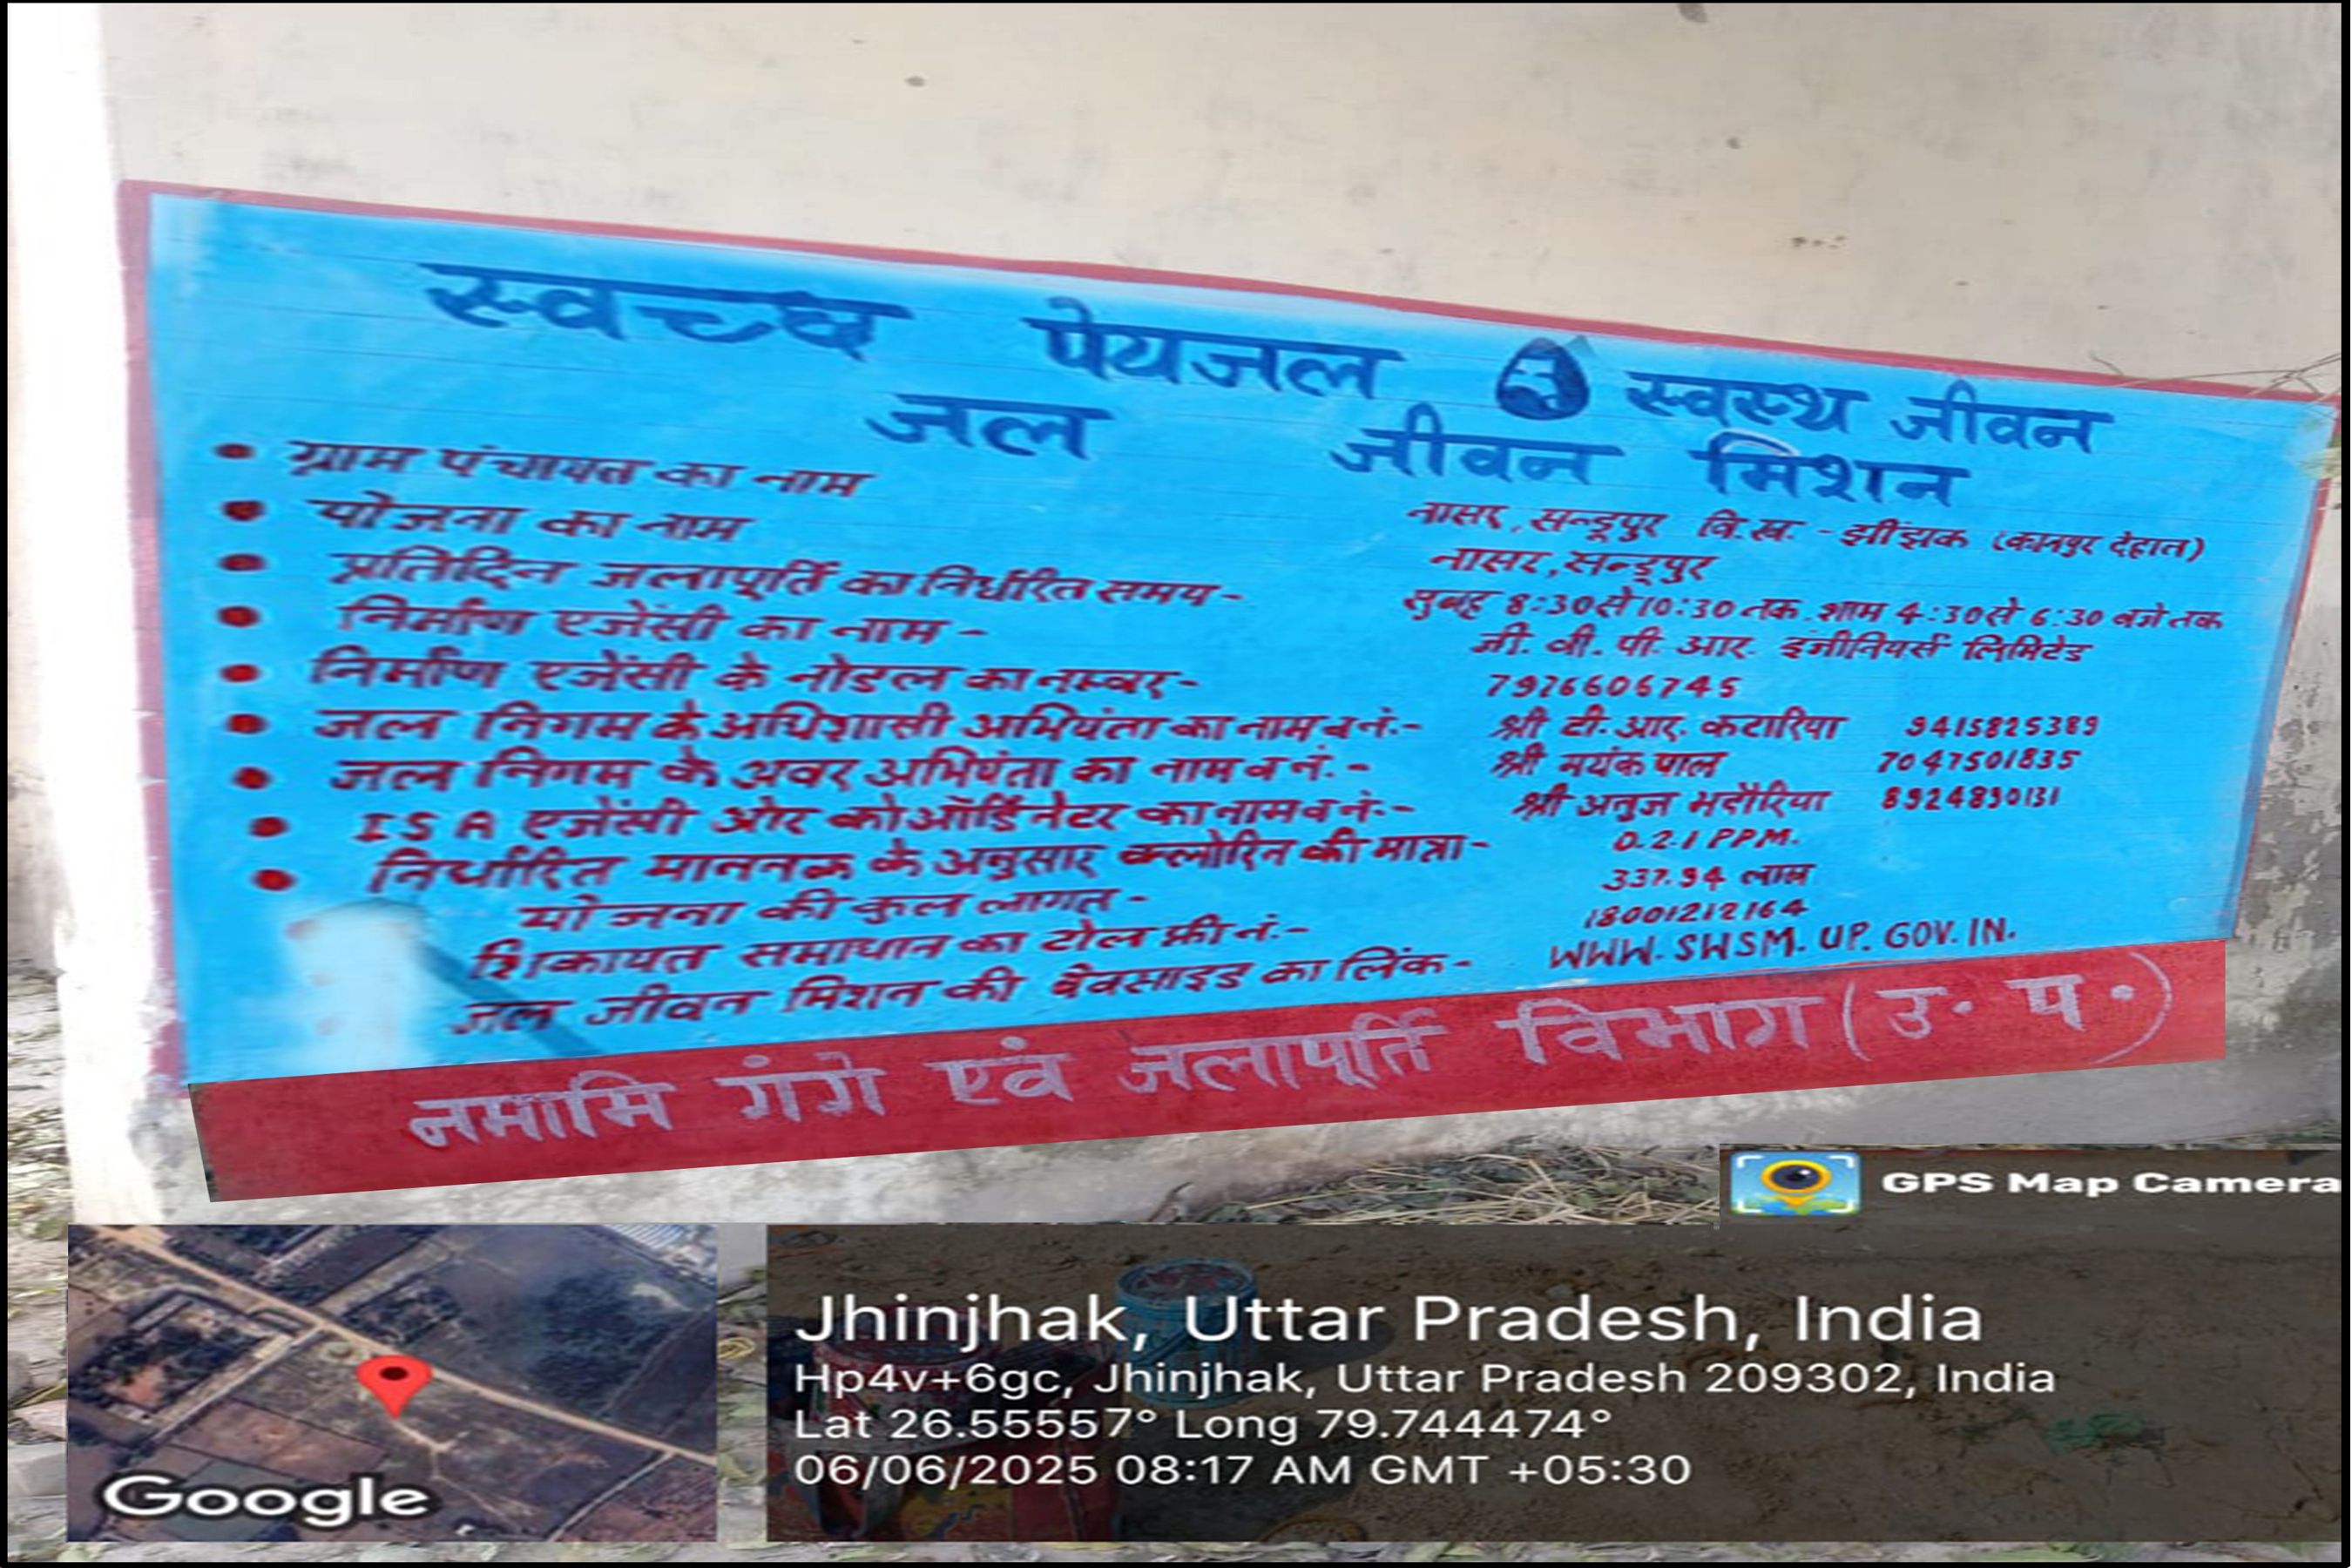 स्वच्छ पेयजल स्वस्थ जीवन
जल जीवन मिशन
• ग्राम पंचायत का नाम नासर, सन्दूपुर वि.ख. - झींझक (कानपुर देहात)
• योजना का नाम नासर, सन्दूपुर
• प्रतिदिन जलापूर्ति का निर्धारित समय - सुबह 8:30 से 10:30 तक. शाम 4:30 से 6:30 बजे तक
• निर्माण एजेंसी का नाम - जी. वी. पी. आर. इंजीनियर्स लिमिटेड
• निर्माण एजेंसी के नोडल का नम्बर - 7976606745
• जल निगम के अधिशासी अभियंता का नाम व नं.- श्री टी. आर. कटारिया 9415825389
• जल निगम के अवर अभियंता का नाम व नं.- श्री मयंक पाल 7047501835
• ISA एजेंसी ओर कोऑर्डिनेटर का नाम व नं.- श्री अनुज भदौरिया 8924890131
• निर्धारित माननक के अनुसार क्लोरिन की मात्रा - 0.2.1 PPM.
योजना की कुल लागत - 337.94 लाख
शिकायत समाधान का टोल फ्री नं.- 18001212164
जल जीवन मिशन की वैवसाइड का लिंक - WWW.SWSM.UP.GOV.IN.
नमामि गंगे एवं जलापूर्ति विभाग (उ. प.)
GPS Map Camera
Google
Jhinjhak, Uttar Pradesh, India
Hp4v+6gc, Jhinjhak, Uttar Pradesh 209302, India
Lat 26.55557° Long 79.744474°
06/06/2025 08:17 AM GMT +05:30